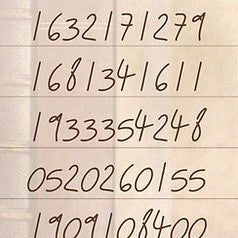 1632171279
1681341611
1933354248
0520260155
1909108400